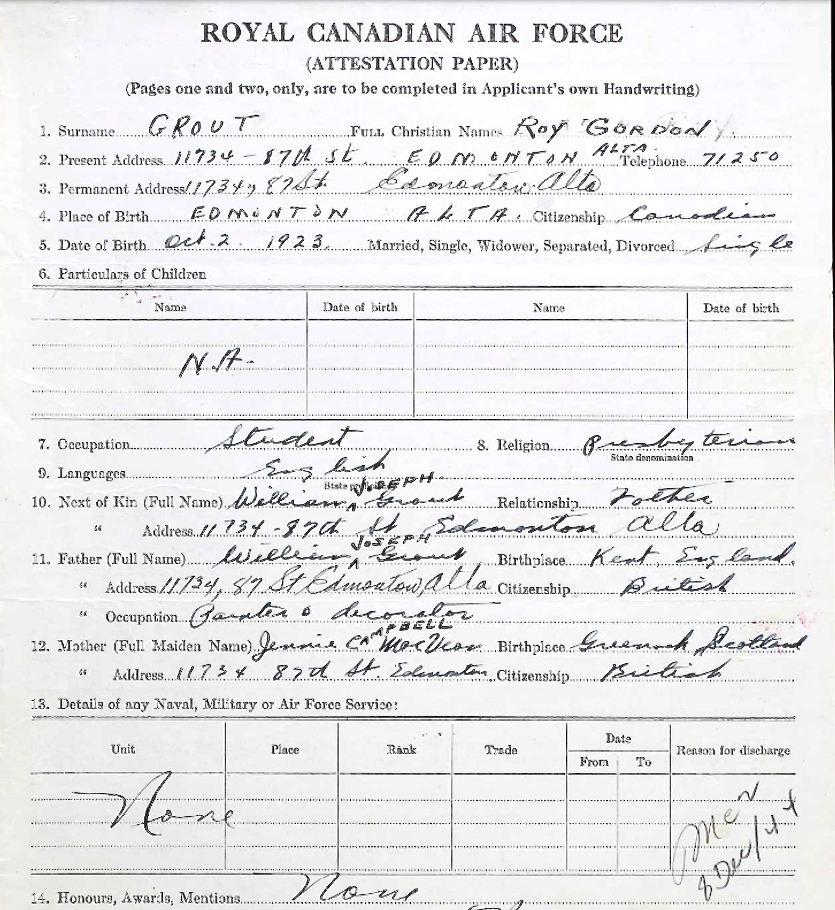 ROYAL CANADIAN AIR FORCE
(ATTESTATION PAPER)
(Pages one and two, only, are to be completed in Applicant's own Handwriting)
1. Surname GROUT FULL Christian Names ROY GORDON
2. Present Address 11734 - 87th St EDMONTON ALTA. Telephone 71250
3. Permanent Address 11734, 87 St. Edmonton, Alta
4. Place of Birth EDMONTON ALTA. Citizenship Canadian
5. Date of Birth Oct. 2 1923. Married, Single, Widower, Separated, Divorced Single
6. Particulars of Children
Name Date of birth Name Date of birth
N.A.
7. Occupation Student 8. Religion Presbyterian
State denomination
9. Languages English
State
JOSEPH
10. Next of Kin (Full Name) William ^ Grout Relationship Father
" Address 11734 - 87th St Edmonton Alta
JOSEPH
11. Father (Full Name) William ^ Grout Birthplace Kent, England.
" Address 11734, 87 St Edmonton, Alta Citizenship British
" Occupation Painter & decorator
12. Mother (Full Maiden Name) Jennie CAMPBELL MacVean Birthplace Greenock Scotland
" Address 11734 87th St. Edmonton Citizenship British
13. Details of any Naval, Military or Air Force Service:
Unit Place Rank Trade Date Reason for discharge
From To
None
8 Dec/44
14. Honours, Awards, Mentions None